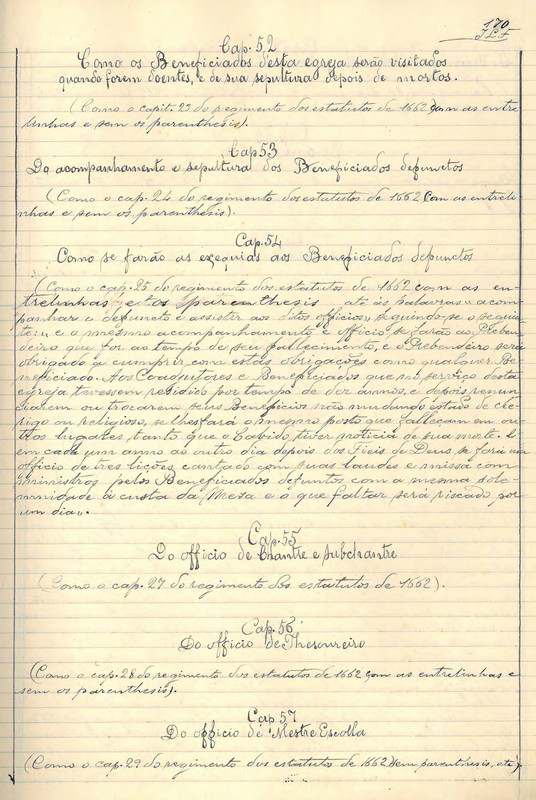 170
Cap. 52
Como os Beneficiados desta egreja serão visitados
quando forem doentes, e de sua sepultura depois de mortos.
(Como o capit. 23 do regimento dos estatutos de 1662 com as entre
linhas e sem os parenthesis).
Cap 53
Do acompanhamento e sepultura dos Beneficiados defunctos
(Como o cap. 24 do regimento dos estatutos de 1662 com as entreli-
nhas e sem os parenthesis).
Cap. 54
Como se farão as exequias aos Beneficiados defunctos
(Como o cap. 25 do regimento dos estatutos de 1662 com as en-
trelinhas parenthesis, até ás palavras "acom-
panhar o defuncto e assistir aos ditos officios", seguindo-se o seguin-
te: "e o mesmo acompanhamento, e officio se farão ao Preben-
deiro que for ao tempo de seu fallecimento, e o Prebendeiro será
obrigado a cumprir com estas obrigações como qualquer Be-
neficiado. Aos Coadjutores e Beneficiados que no serviço desta
egreja tivessem residido por tempo de dez annos, e depois renun-
ciarem ou trocarem seus Beneficios não mudando estado de cle-
rigo ou religioso, se lhes fará o mesmo posto que falleçam em ou-
tros lugares, tanto que o Cabido tiver noticia de sua morte. E
em cada um anno ao outro dia depois dos Fieis de Deus, se fará um
officio de tres lições cantado com suas laudes e missa com
ministros pelos Beneficiados defuntos com a mesma sole-
mnidade á custa da Mesa e o que faltar será riscado por
um dia".
Cap. 55
Do officio de Chantre e subchantre
(Como o cap. 27 do regimento dos estatutos de 1662).
Cap. 56
Do officio de Thesoureiro
(Como o cap. 28 do regimento dos estatutos de 1662 com as entrelinhas e
sem os parenthesis).
Cap 57
Do officio de Mestre Escolla
(Como o cap. 29 do regimento dos estatutos de 1662 sem parenthesis, etc)